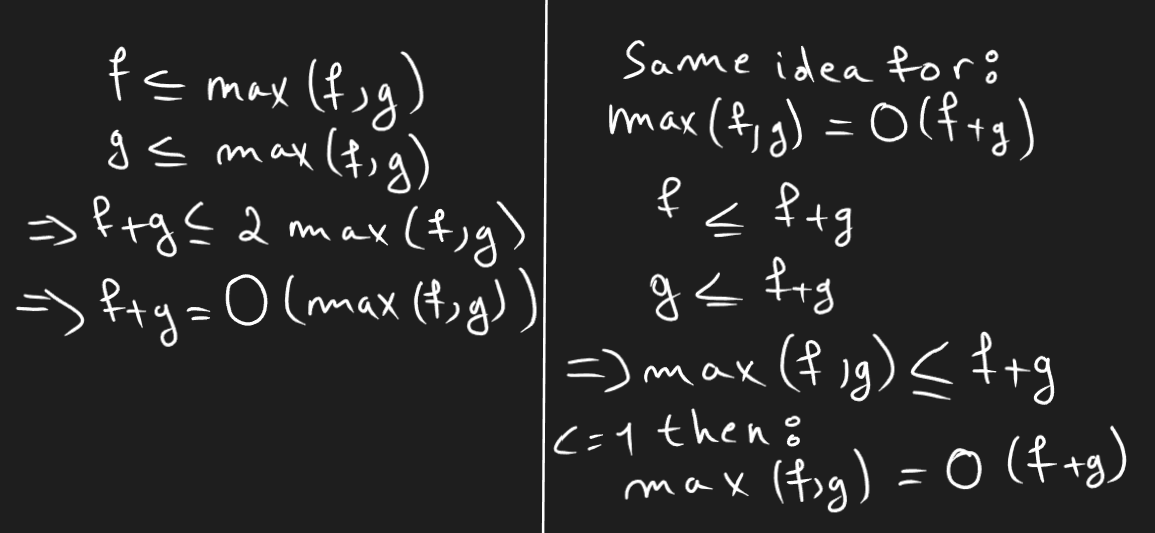 f ≤ max(f,g)
g ≤ max(f,g)
⇒ f+g ≤ 2 max(f,g)
⇒ f+g = O(max(f,g))
Same idea for:
max(f,g) = O(f+g)
f ≤ f+g
g ≤ f+g
⇒ max(f,g) ≤ f+g
c=1 then:
max(f,g) = O(f+g)